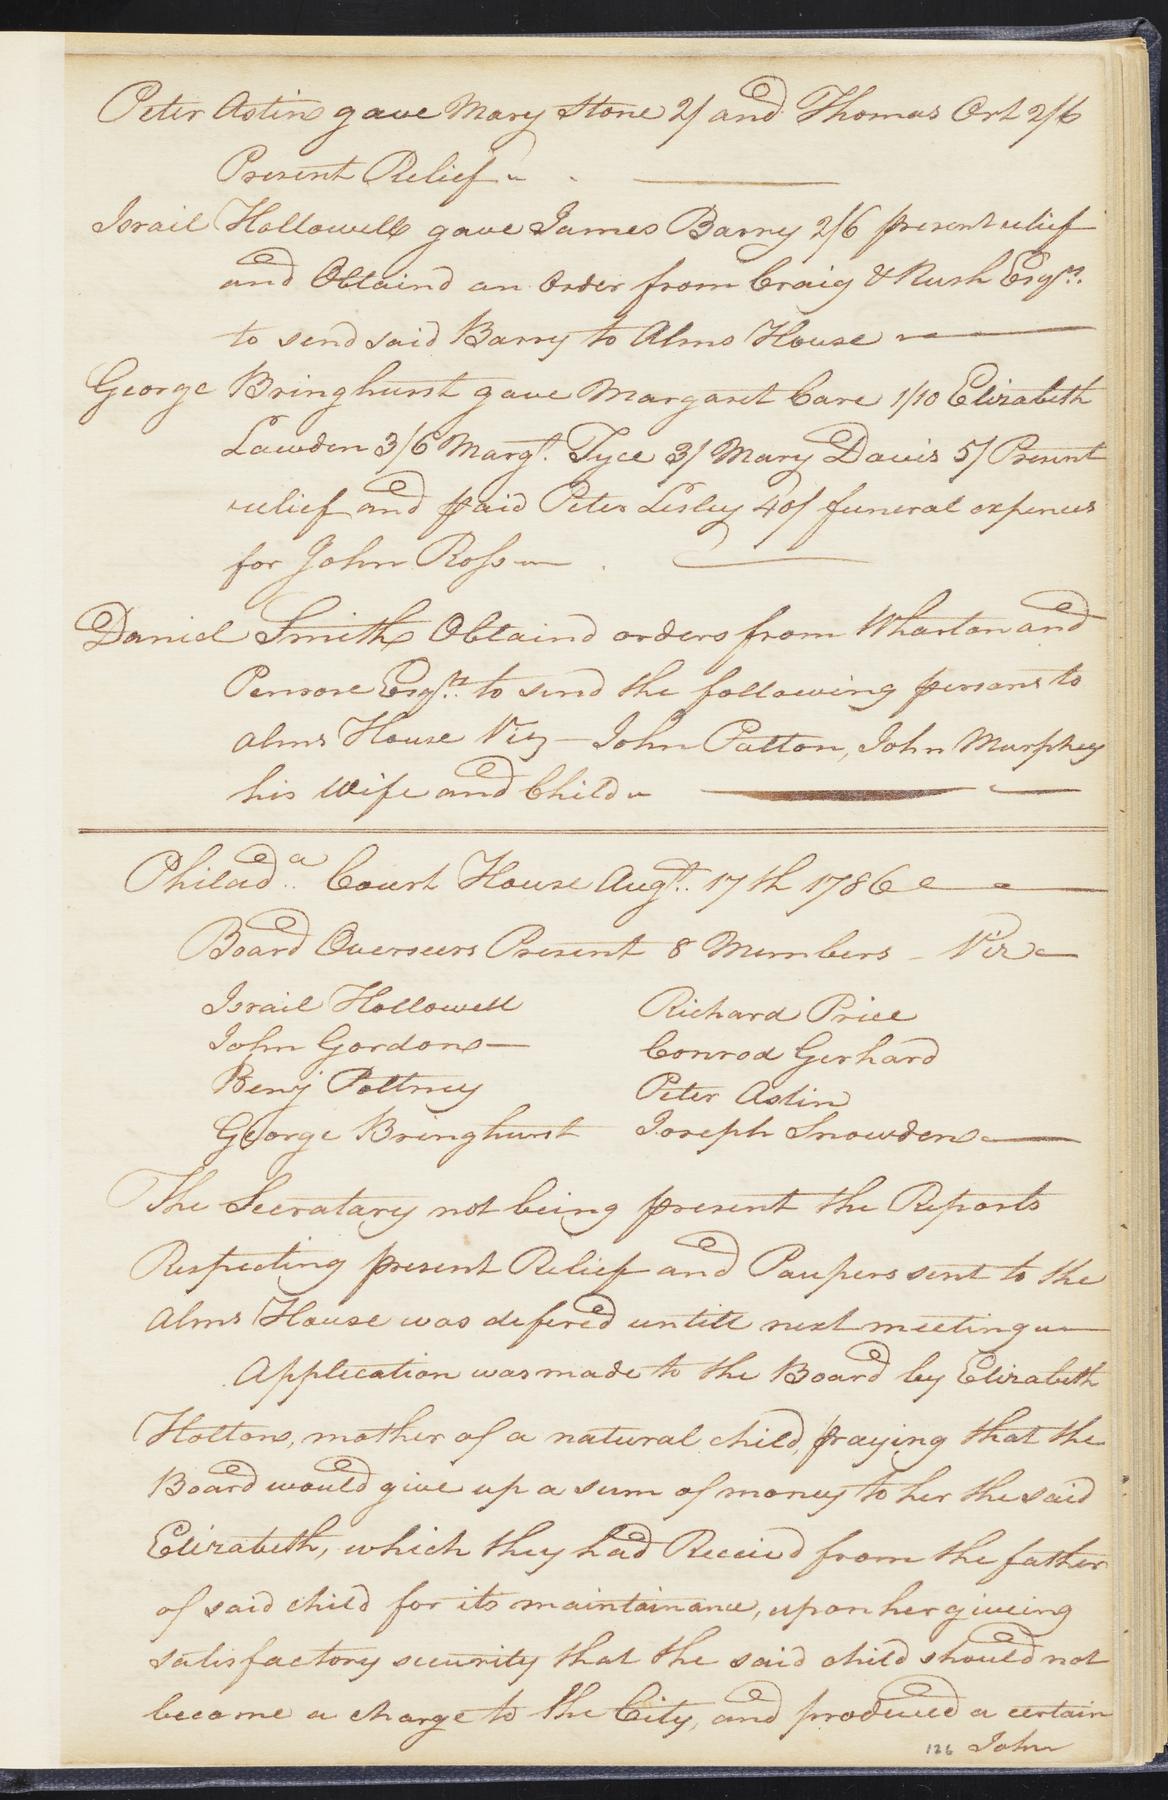 Peter Astin gave Mary Stone 2/ and Thomas Ort 2/6
Present Relief
Israil Hollowell gave James Barry 2/6 present relief
and Obtaind an Order from Craig & Rush Esqrs.
to send said Barry to Alms House
George Bringhurst gave Margaret Care 1/10 Elizabeth
Lawden 3/6 Margt. Tyce 3/ Mary Davis 5/ Present
relief and paid Peter Lesley 40/ funeral expences
for John Ross
Daniel Smith Obtaind orders from Wharton and
Penrose Esqrs. to send the following persons to
Alms House Viz - John Patton, John Murphey
his Wife and Child
Philad.a Court House Augt. 17th 1786
Board Overseers Present 8 Members - Viz
Israil Hollowell Richard Price
John Gordon Conrod Gerhard
Benj Poltney Peter Astin
George Bringhurst Joseph Snowden
The Secratary not being present the Reports
Respecting present Relief and Paupers sent to the
Alms House was defered untill next meeting
Application was made to the Board by Elizabeth
Holton, mother of a natural child, praying that the
Board would give up a sum of money to her the said
Elizabeth, which they had Receied from the father
of said child for its maintainance, upon her giveing
satisfactory security that the said child should not
become a charge to the City, and produced a certain
126 John